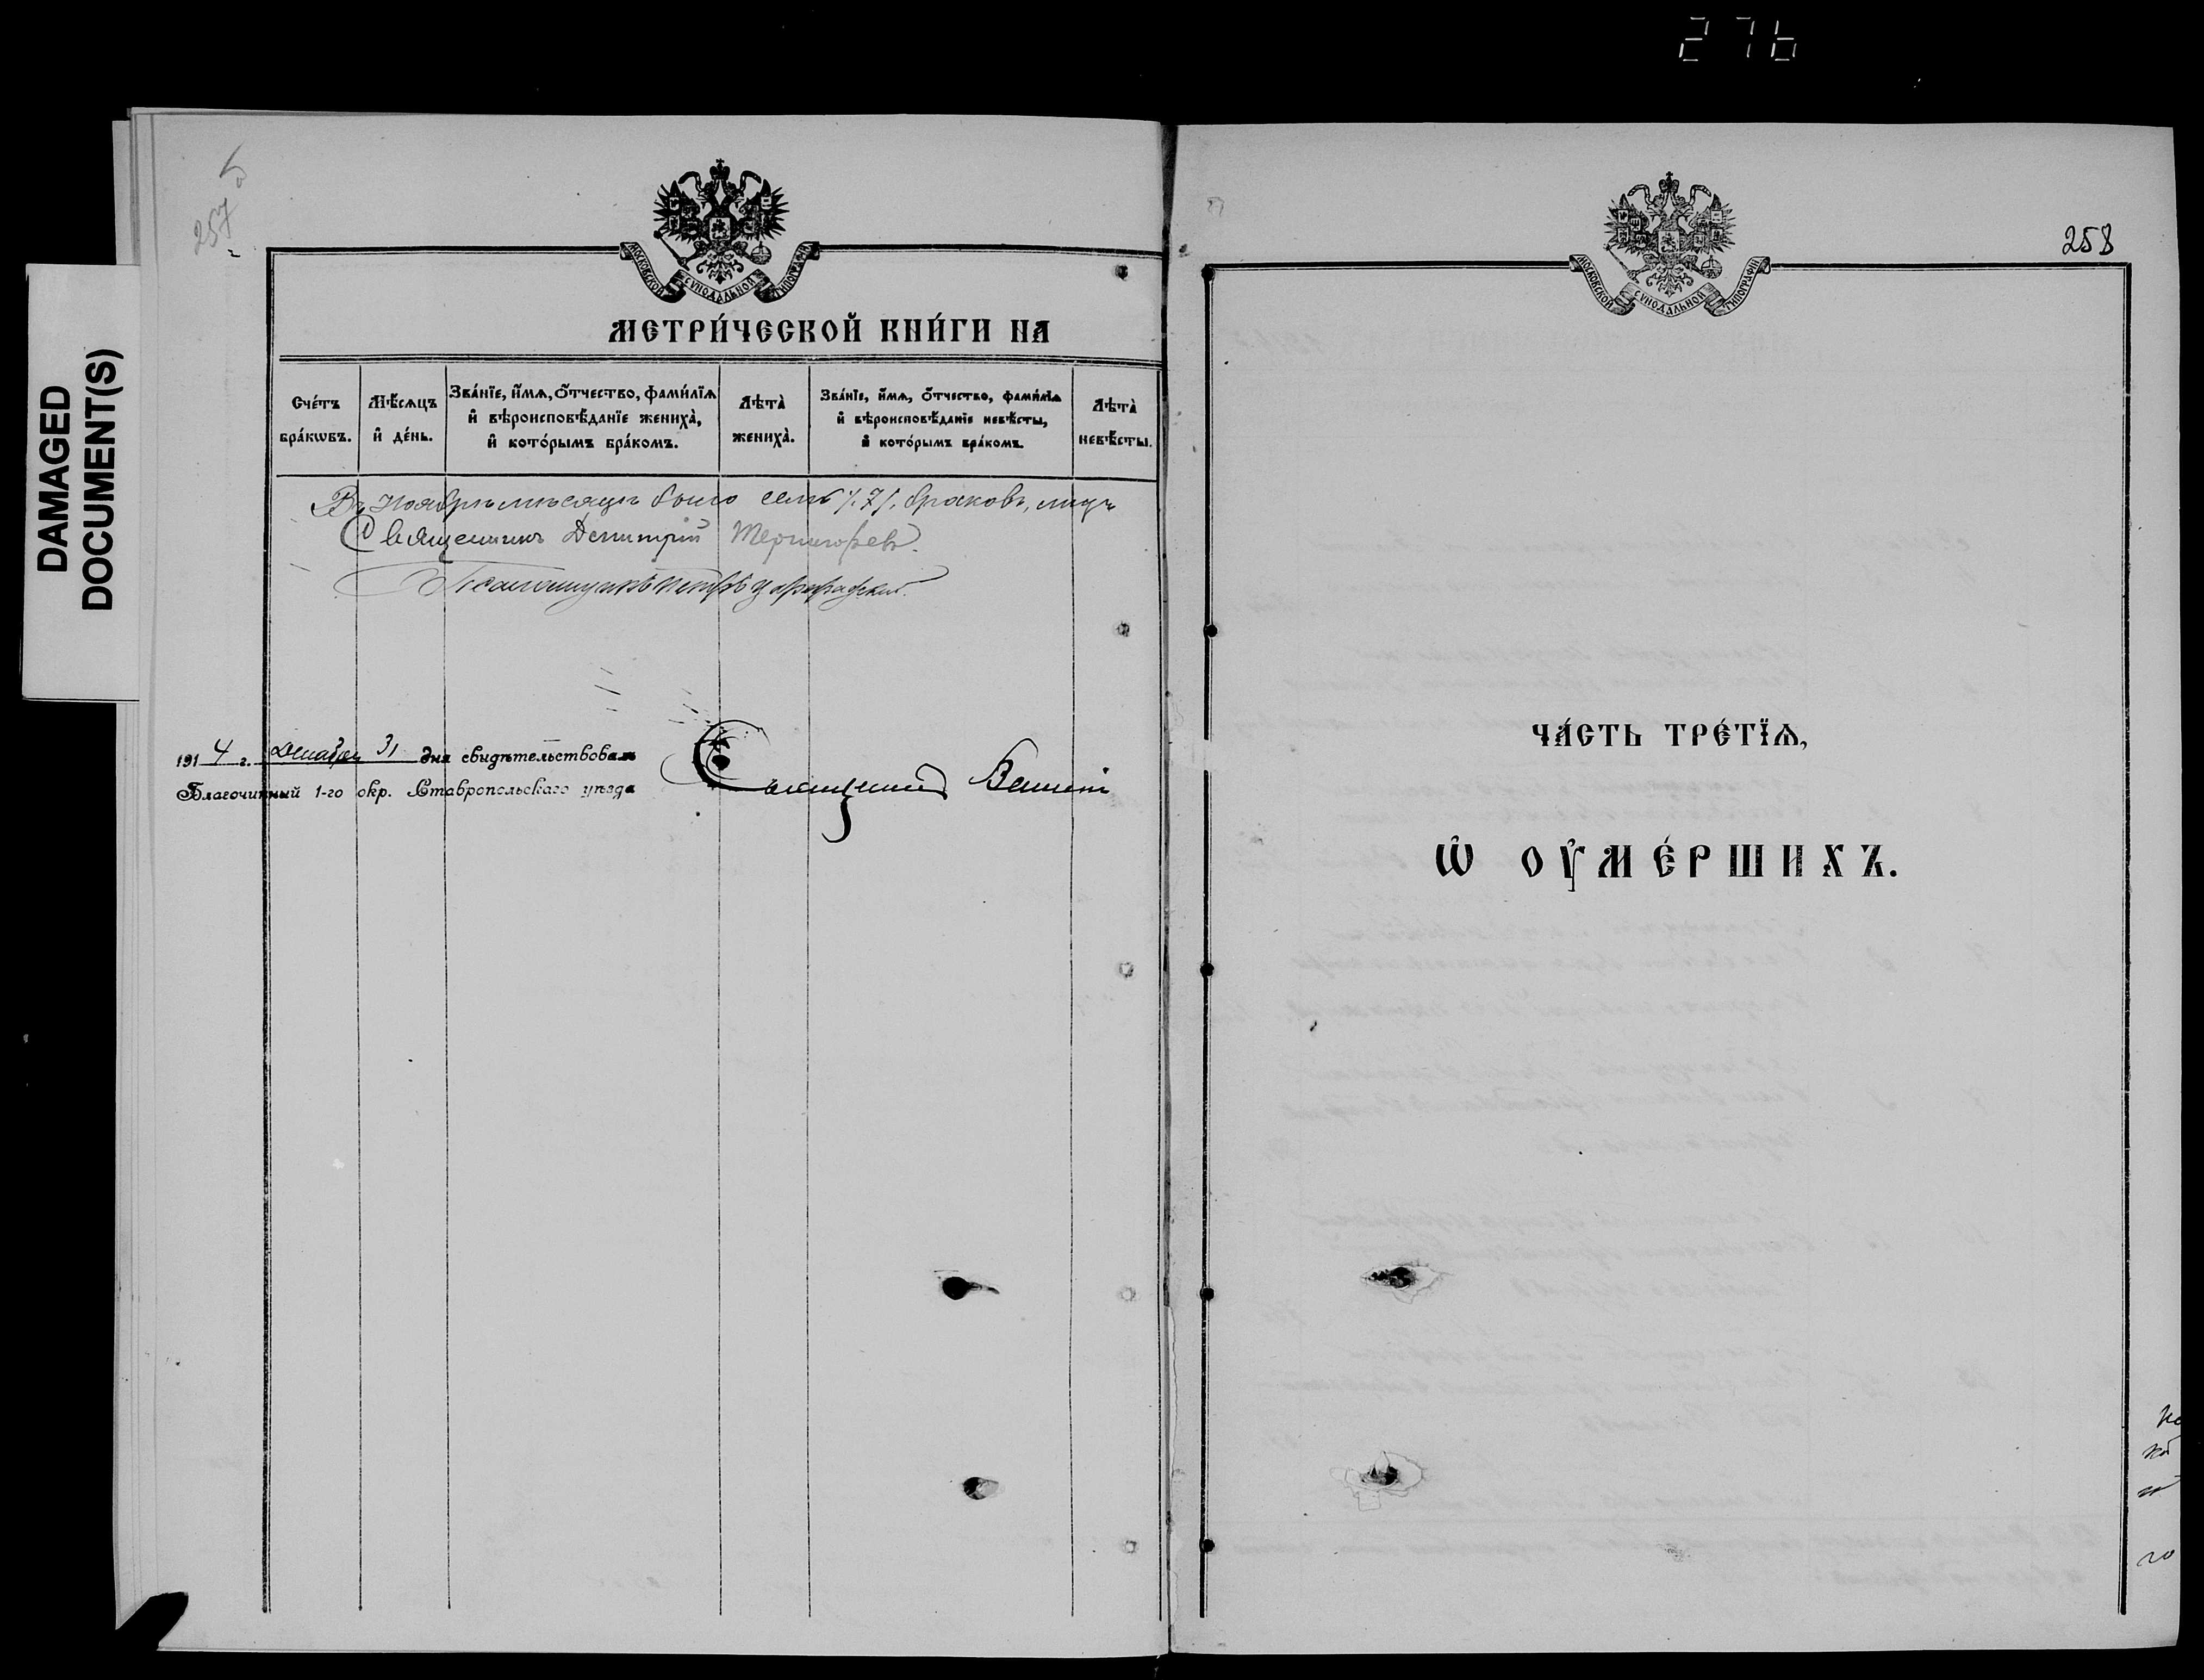 276
DAMAGED
DOCUMENT(S)
257
МОСКОВСКОЙ СѴНОДАЛЬНОЙ ТИПОГРАФІИ
МЕТРИ́ЧЕСКОЙ КНИ́ГИ НА
Сче́тъ бра́кѡвъ.
Мѣ́сѧцъ и҆ де́нь.
Зва́нїе, и҆́мѧ, ѻ҆́тчество, фами́лїѧ и҆ вѣроисповѣ́данїе жениха̀, и҆ кото́рымъ бра́комъ.
Лѣта̀ жениха̀.
Зва́нїе, и҆́мѧ, ѻ҆́тчество, фами́лїѧ и҆ вѣроисповѣ́данїе невѣ́сты, и҆ кото́рымъ бра́комъ.
Лѣта̀ невѣ́сты.
Въ Ноябрѣ мѣсяцѣ было семь /.7/. браковъ,
Священникъ Димитрій
Псаломщикъ Петръ
1914 г. Декабря 31 дня свидѣтельствовалъ
Благочинный 1-го окр. Ставропольскаго уѣзда Священникъ
258
МОСКОВСКОЙ СѴНОДАЛЬНОЙ ТИПОГРАФІИ
ЧА́СТЬ ТРЕ́ТЇѦ,
Ѡ҆ ОУ҆МЕ́РШИХЪ.